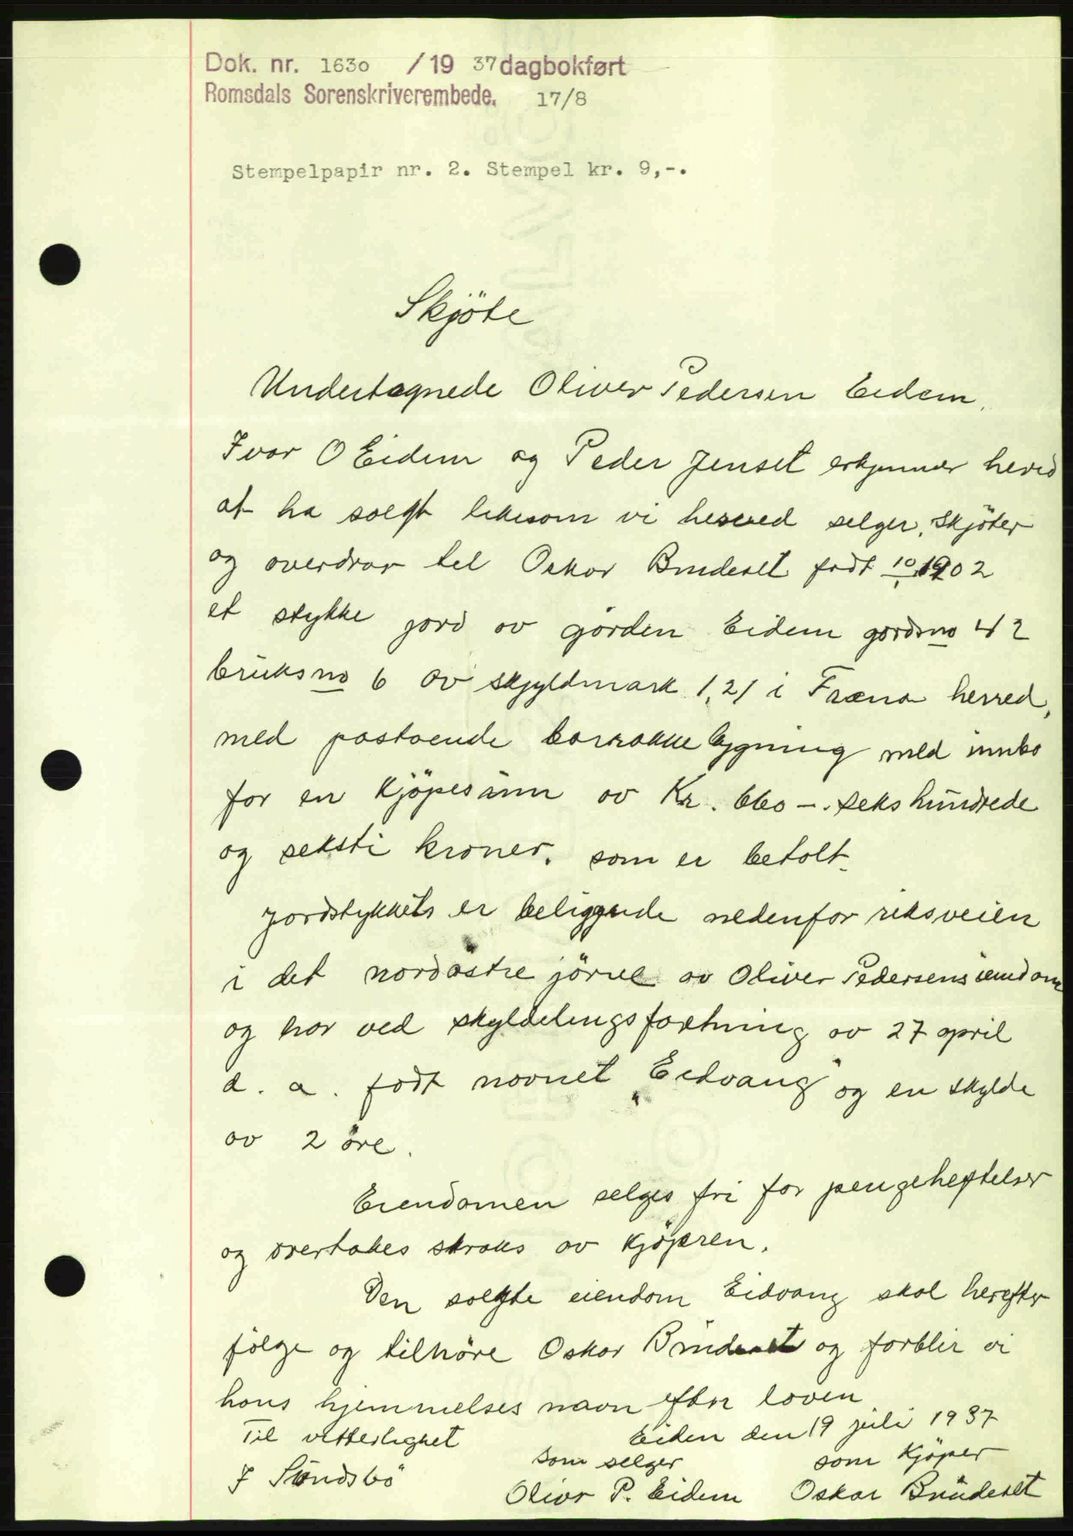 Dok. nr. 1630 /19 37 dagbokført
Romsdals Sorenskriverembede. 17/8
Stempelpapir nr. 2. Stempel kr. 9,-.
Skjöte
Undertegnede Oliver Pedersen Eidem,
Ivar O Eidem og Peder Jenset erkjenner herved
at ha solgt likesom vi herved selger, skjöter
og overdrar til Oskar Bruderet født 10/1 1902
et stykke jord av gården Eidem gårdsno 42
bruksno 6 av skyldmark 1,21 i Fræna herred,
med påstående barrakkebygning med innbo
for en kjöpesum av Kr. 660 -. seks hundrede
og seksti kroner. som er betalt.
Jordstykkets er beliggende nedenfor riksveien
i det nordöstre jörne av Oliver Pedersens eiendom
og har ved skyldelingsforretning av 27 april
d. a. fådt navnet "Eidvang" og en skylde
av 2 öre.
Eiendomen selges fri for pengeheftelser
og overtakes straks av kjöperen.
Den solgte eiendom Eidvang skal herefter
fölge og tilhöre Oskar Bruderet og forblir vi
hans hjemmelses navn efter loven
Til vitterlighet Eiden den 19 juli 1937
som selger som Kjöper
J Sundsbö Oliver P. Eidem Oskar Bruderet